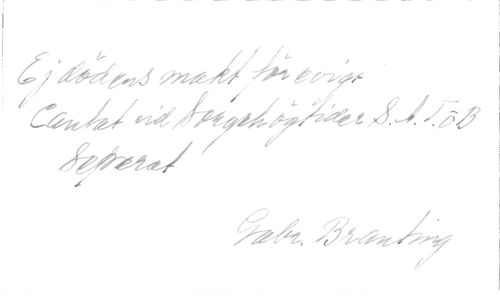 Ej dödens makt för evigt
Cantat vid Sorgehögtider S.A.T.o B
Separat
Gabr. Branting